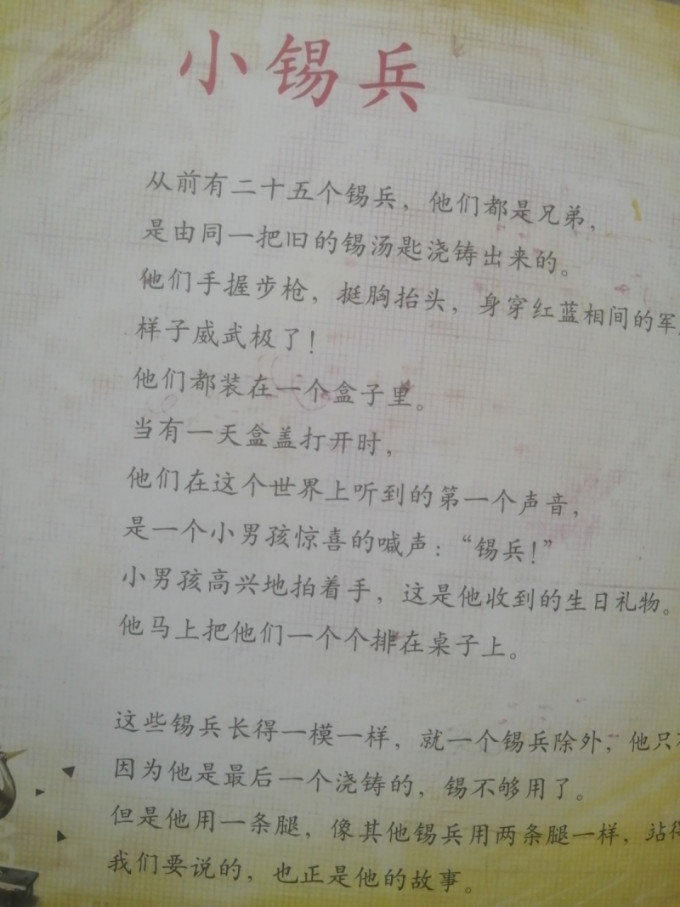 小锡兵
从前有二十五个锡兵，他们都是兄弟，
是由同一把旧的锡汤匙浇铸出来的。
他们手握步枪，挺胸抬头，身穿红蓝相间的军
样子威武极了！
他们都装在一个盒子里。
当有一天盒盖打开时，
他们在这个世界上听到的第一个声音，
是一个小男孩惊喜的喊声：“锡兵！”
小男孩高兴地拍着手，这是他收到的生日礼物。
他马上把他们一个个排在桌子上。
这些锡兵长得一模一样，就一个锡兵除外，他只
因为他是最后一个浇铸的，锡不够用了。
但是他用一条腿，像其他锡兵用两条腿一样，站得
我们要说的，也正是他的故事。